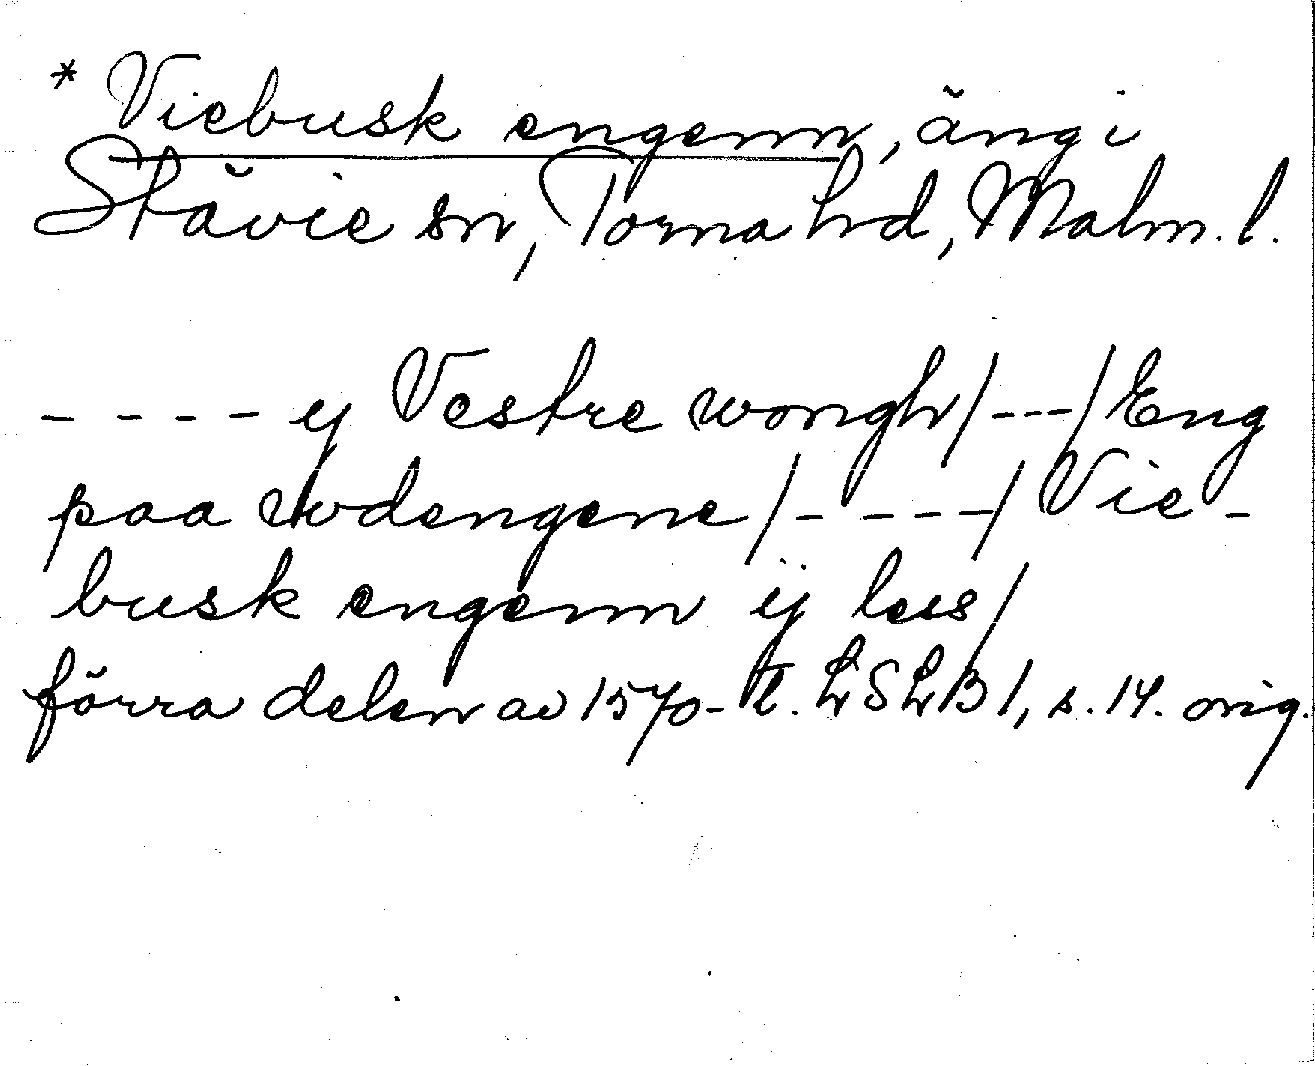 * Viebusk engenn, äng i
Stävie sn, Torna hd, Malm. l.
- - - - ij Vestre wongh / - - - / Eng
paa wdengene / - - - - / Vie -
busk engenn ij less /
förra delen av 1570-t. LSLB 1, s. 14. orig.